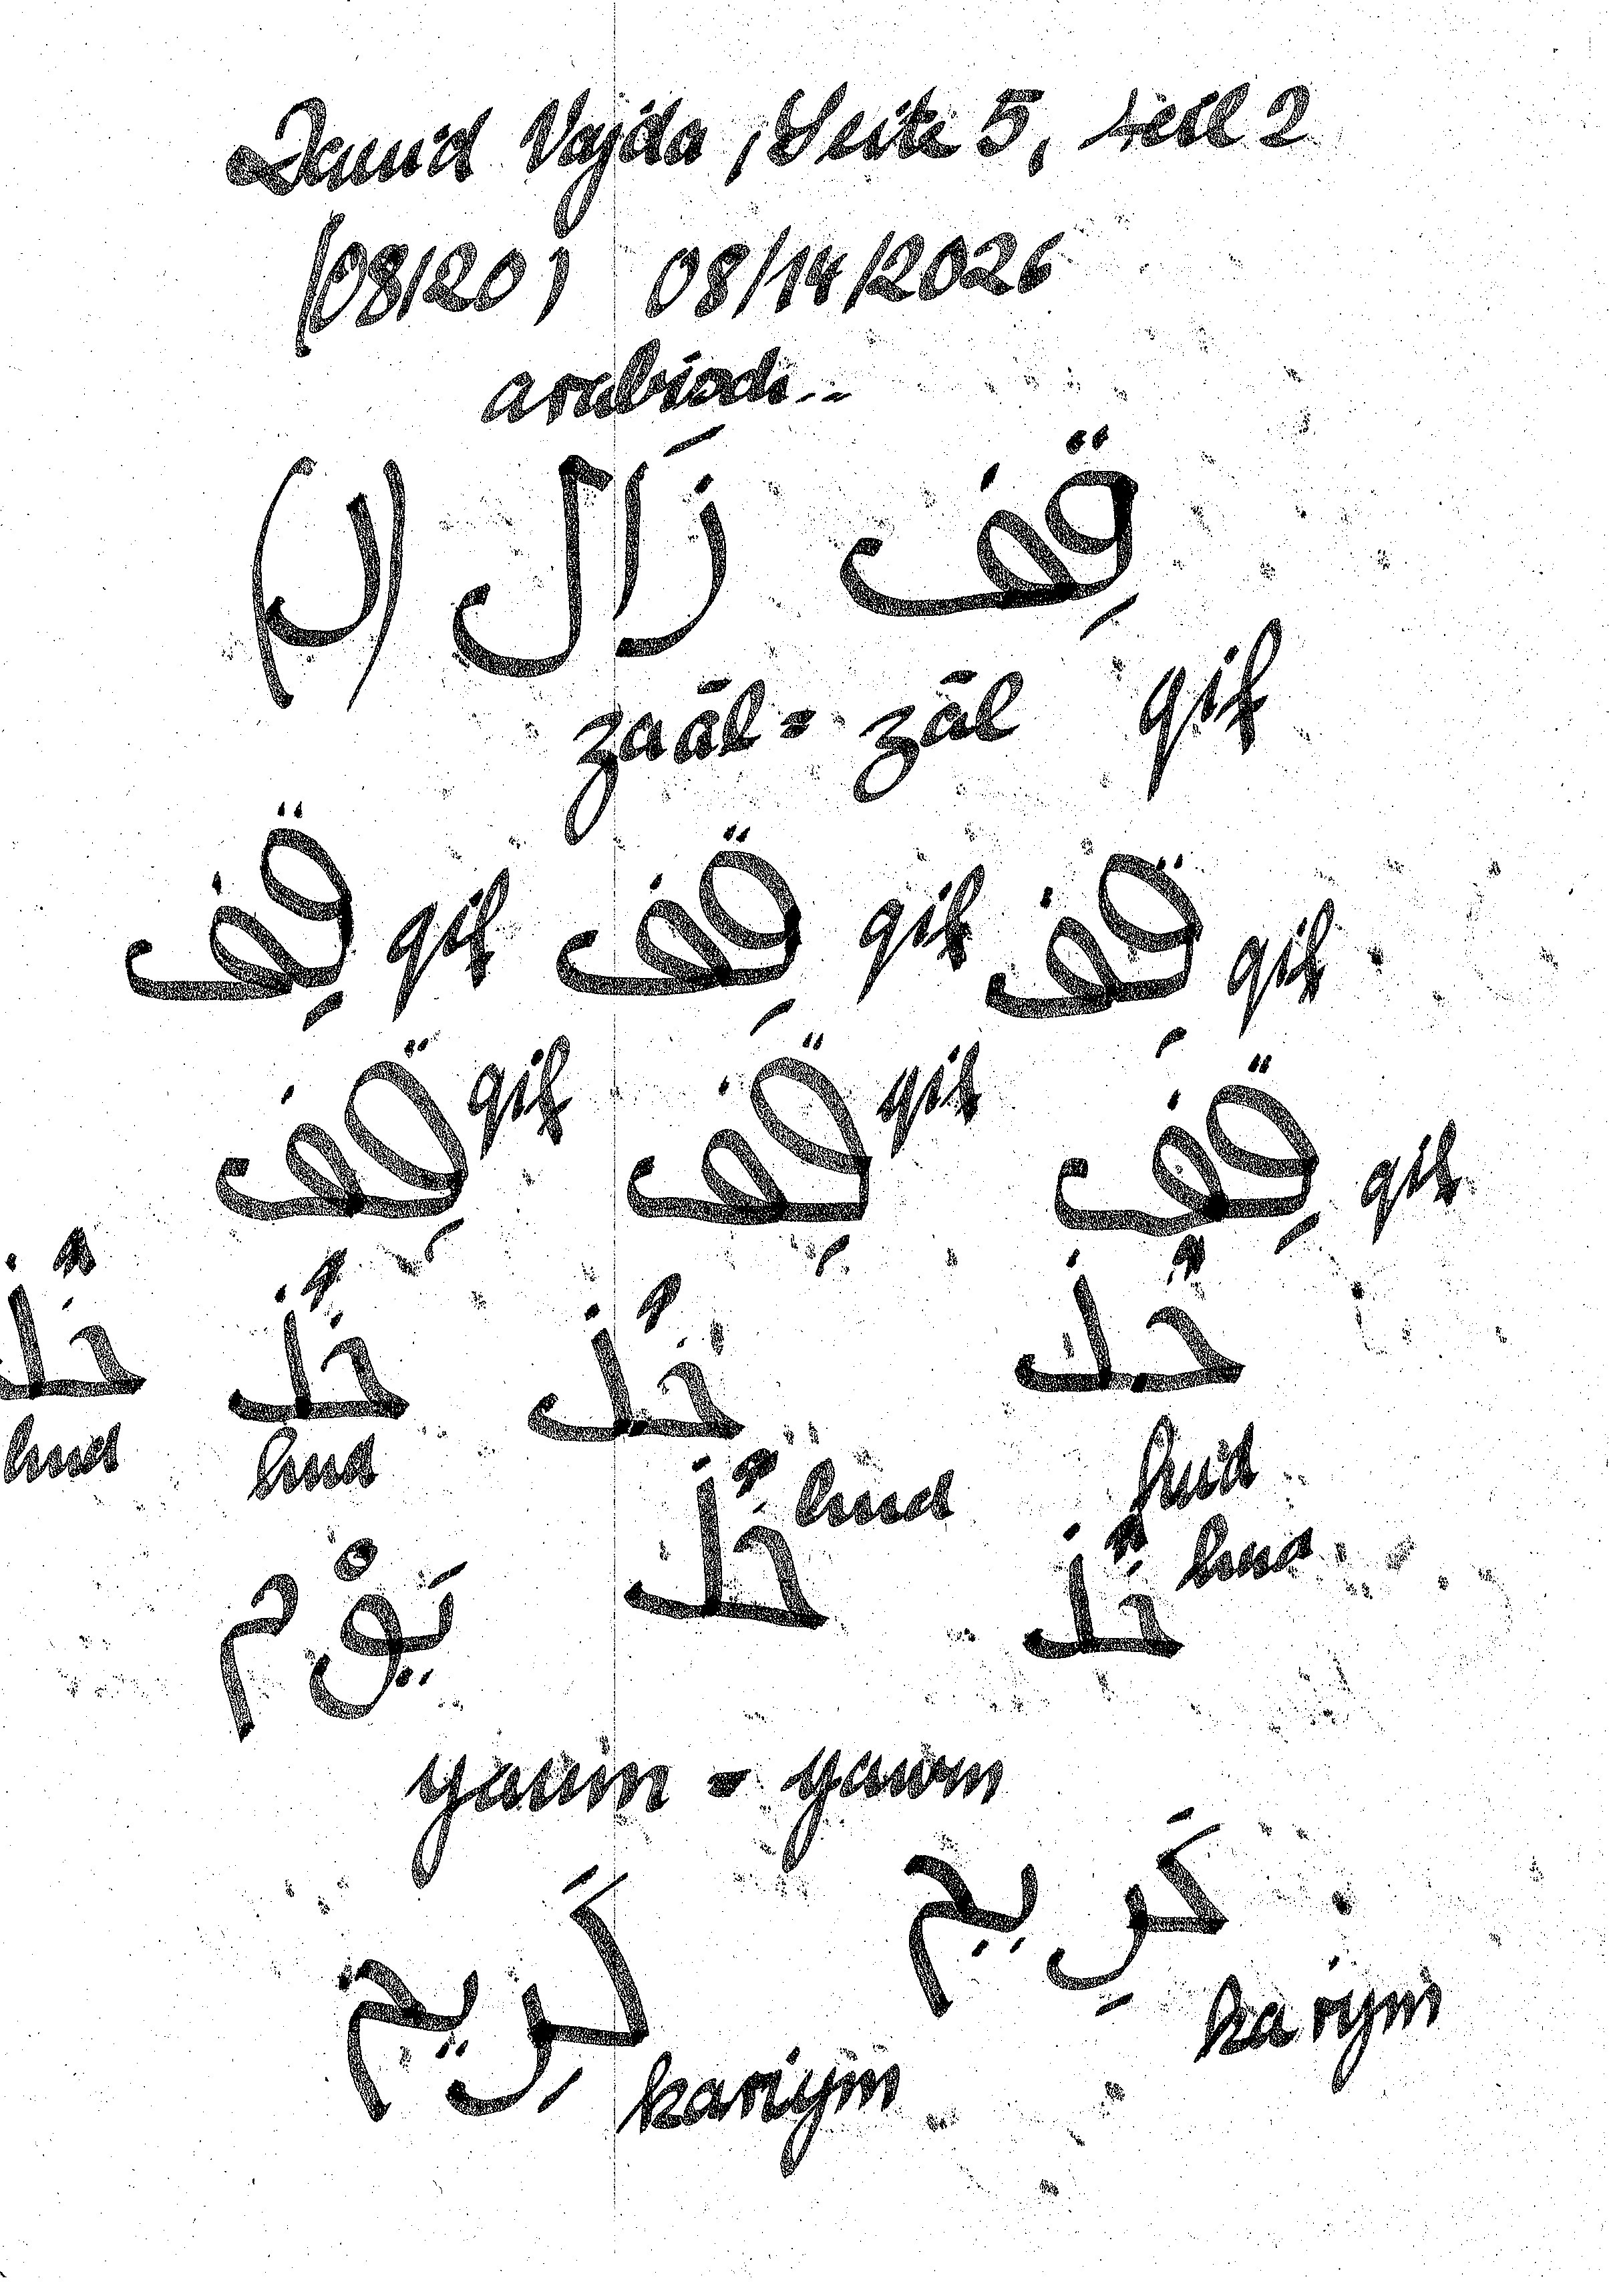 David Vajda, Seite 5, Teil 2
(08/20) 08/14/2026
arabisch..
قِف زَال (ل)
zaāl = zāl qif
قِف qif قِف qif قِف qif
قِف qif قِف qif قِف qif
خُذ خُذ خُذ
hud hud hud hud
خُذ خُذ hud
يَوْم
yaum = yawm
كَرِيم
kariym
كَرِيم
kariym